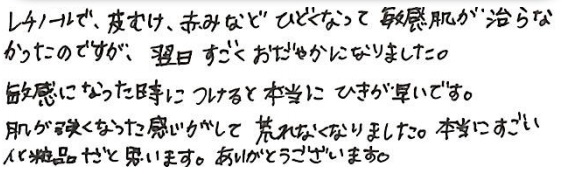 レチノールで、皮むけ、赤みなど ひどくなって 敏感肌が治らな
かったのですが、翌日 すごく おだやかになりました。
敏感になった時に つけると 本当に ひきが早いです。
肌が強くなった感じがして 荒れなくなりました。本当にすごい
化粧品だと思います。ありがとうございます。